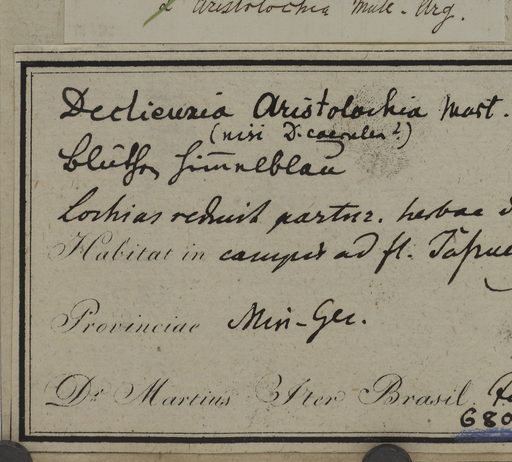 Aristolochia Mull-Arg.
Declieuxia Aristolochia Mart.
(nisi D. coerulea?)
Blüthe himmelblau
Lochias reducit partur. herbae
Habitat in campis ad fl.
Provinciae Min-Ger.
Dr. Martius Iter Brasil.
680